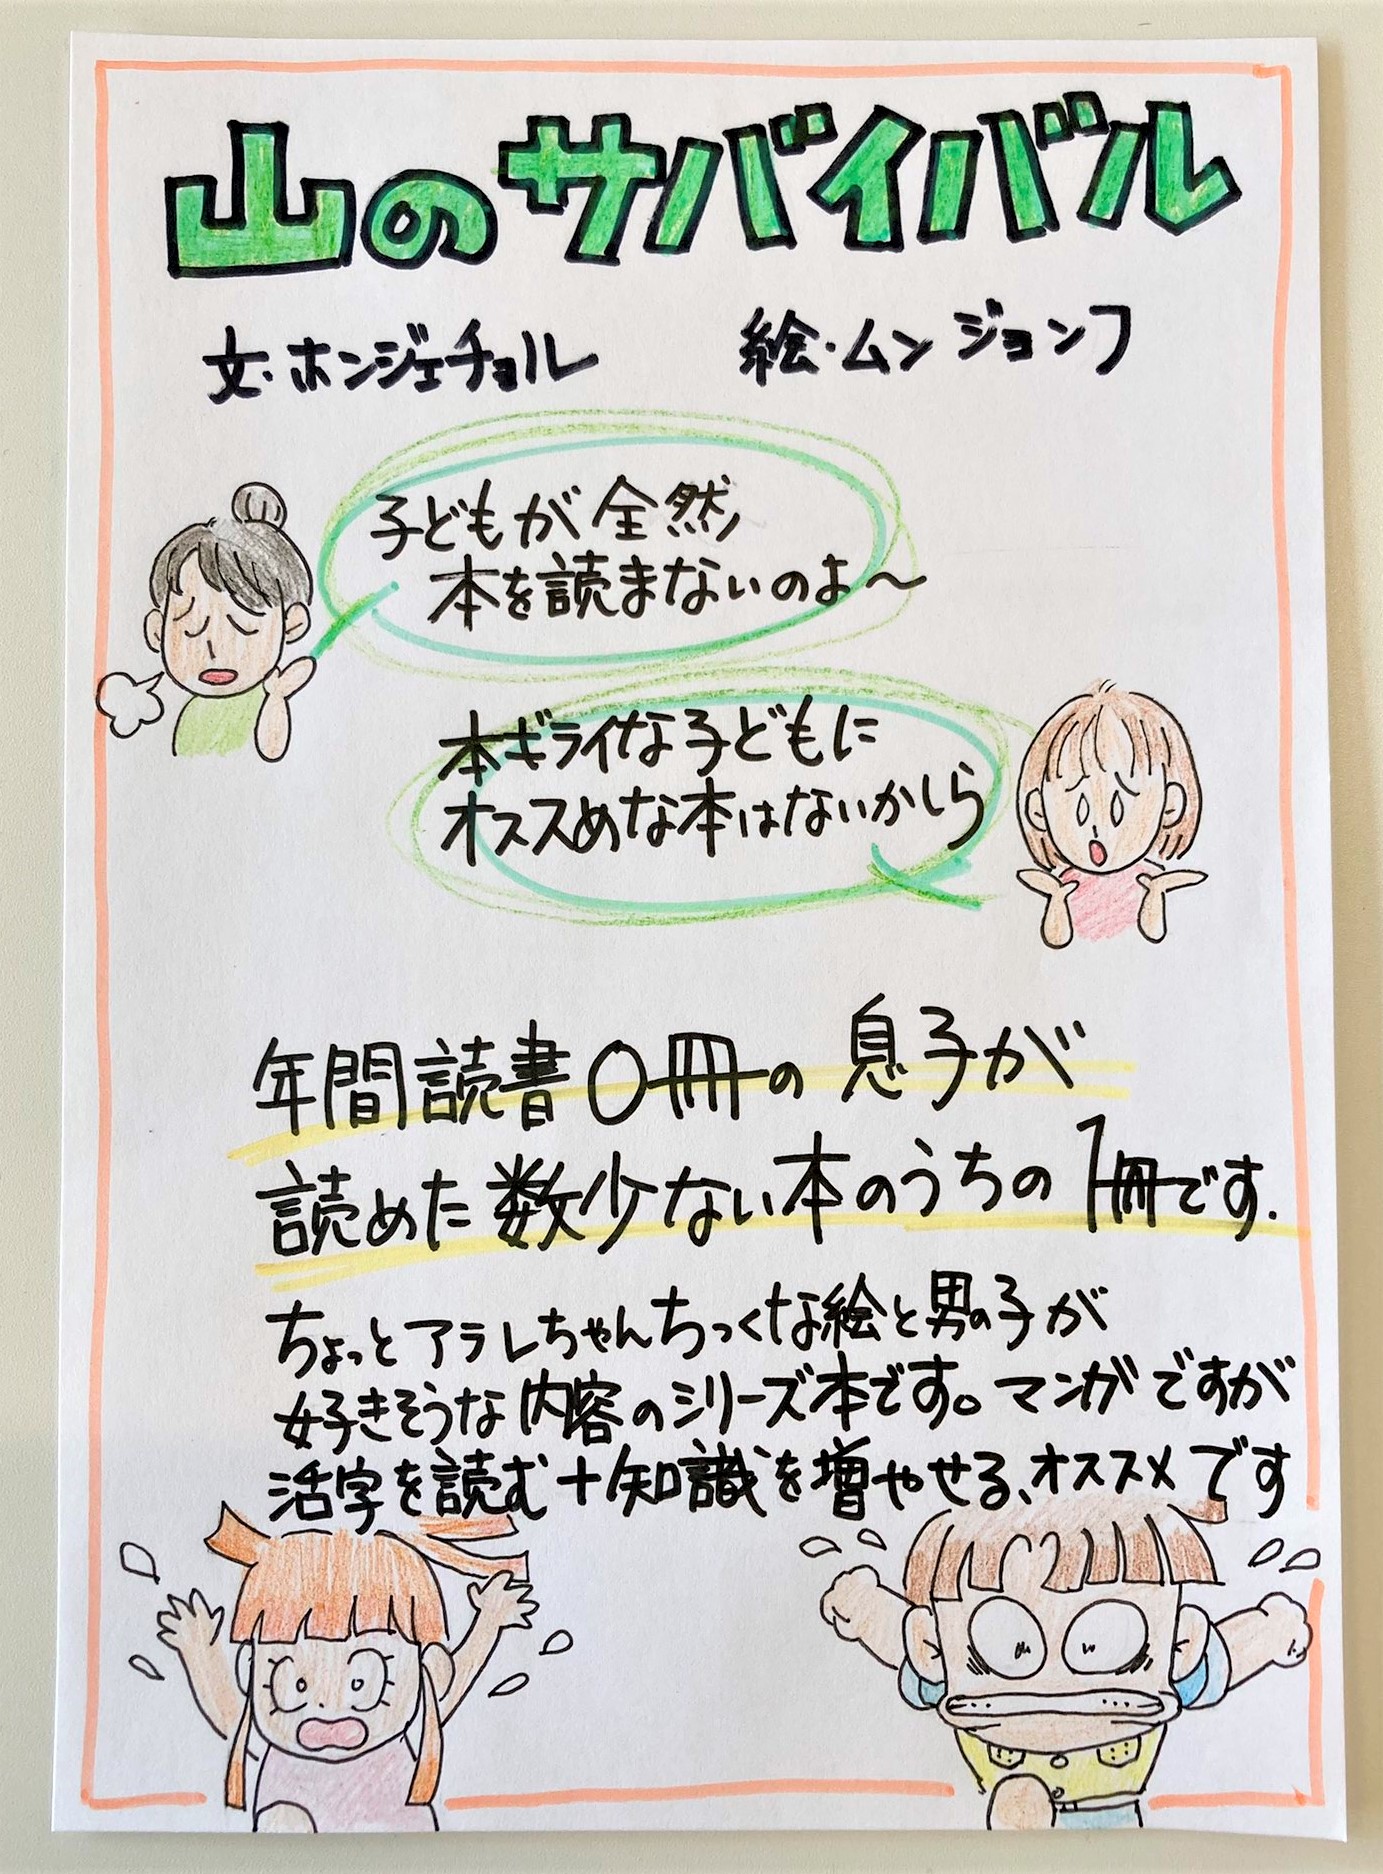 山のサバイバル
文・ホンジェチョル 絵・ムンジョンフ
子どもが全然
本を読まないのよ〜
本ギライな子どもに
オススめな本はないかしら
年間読書0冊の息子が
読めた数少ない本のうちの1冊です.
ちょっとアラレちゃんちっくな絵と男の子が
好きそうな内容のシリーズ本です。マンガですが
活字を読む+知識を増やせる、オススメです